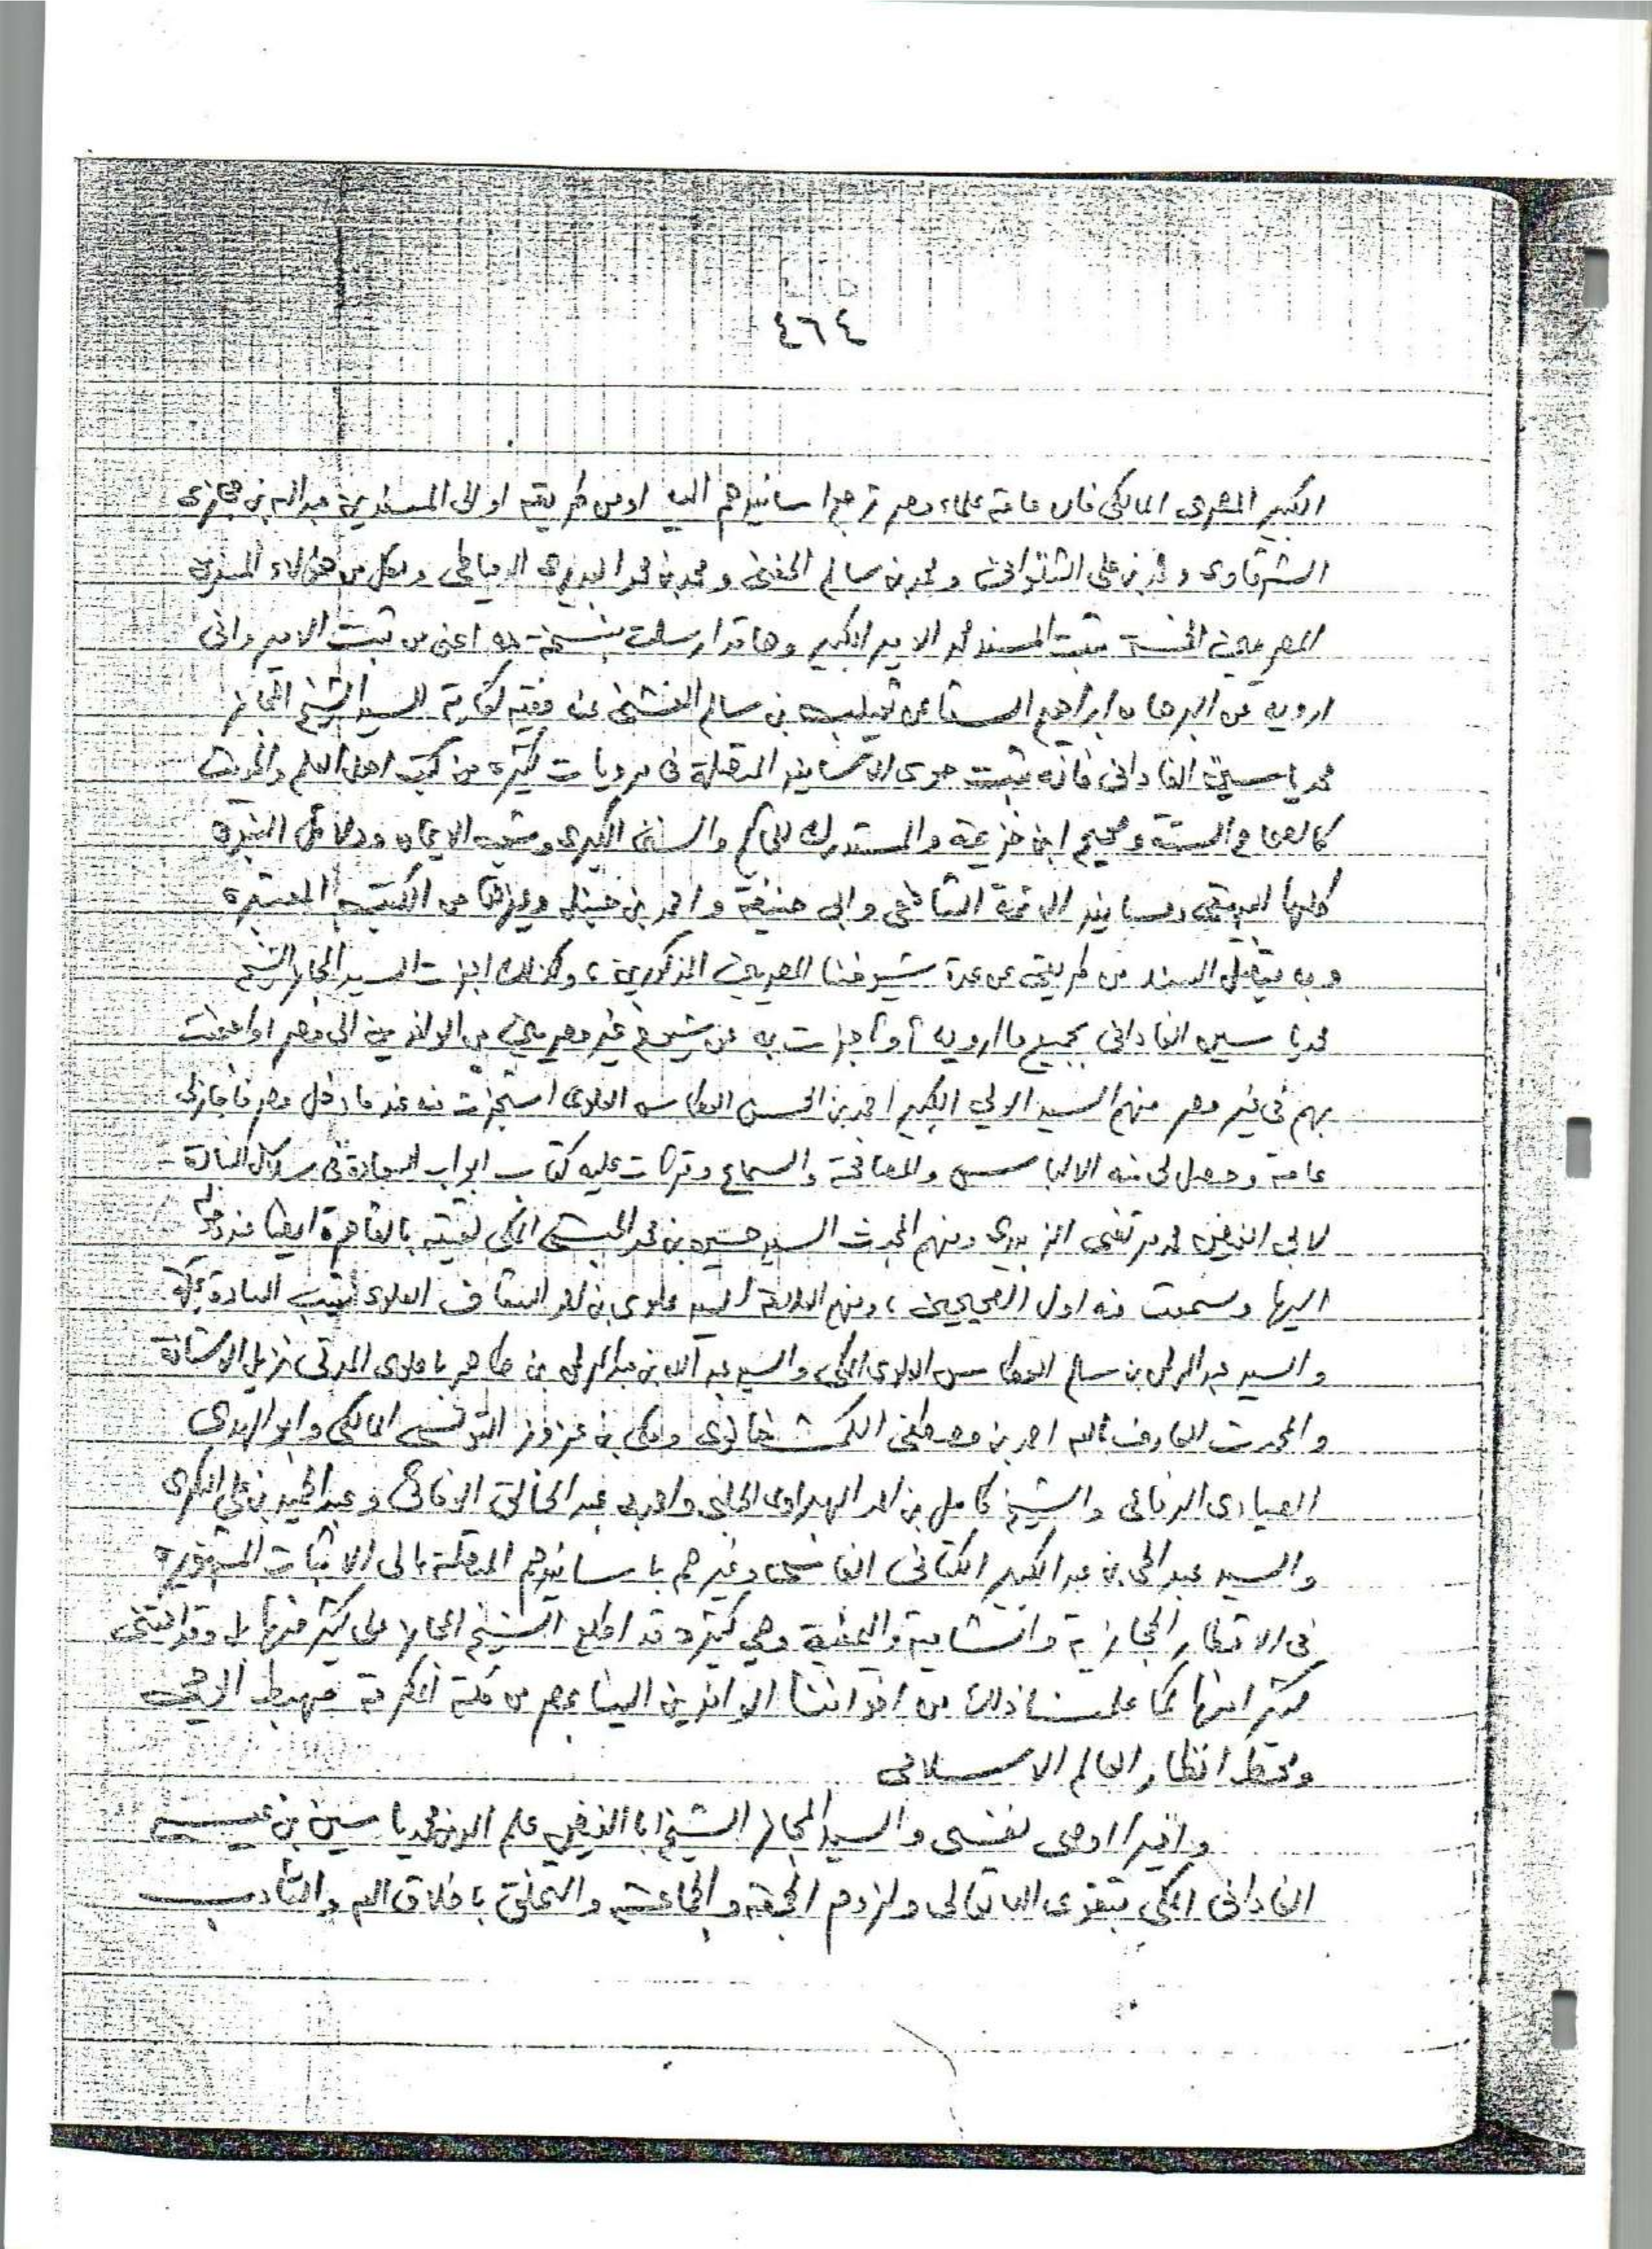 ٤٦٤
الكبير المصرى المالكى فان عامة علماء مصر ترجع اسانيدهم اليه او من طريقه او الى المسندين عبد الله بن حجازى
الشرقاوى و محمد بن على الشنوانى و محمد بن سالم الحفنى و محمد بن محمد البديرى الدمياطى ولكل من هؤلاء المسندين
المصريين الخمسة ثبت المسند محمد الامير الكبير وها قد ارسلت بنسخة منه اعنى من ثبت الامير وانى
ارويه عن البرهان ابراهيم السقا عن ثعيلب بن سالم الفشنى عنه السيد الشيخ المجاز
محمد ياسين الفادانى فانه ثبت حوى الاسانيد المتصلة فى مرويات كثيرة من كتب اهل العلم والحديث
كالصحاح الستة وصحيح ابن خزيمة والمستدرك للحاكم والسنن الكبرى وشعب الايمان ودلائل النبوة
كلها للبيهقى ومسانيد الائمة الشافعى وابى حنيفة واحمد بن حنبل وغيرها من الكتب المعتبرة
وبه يتصل السند من طريقى عن عدة شيوخنا المصريين المذكورين ، وكذلك اجزت السيد المجاز الشيخ
محمد ياسين الفادانى بجميع ما ارويه او اجزت به عن شيوخ غير مصريين من الوافدين الى مصر او اجتمعت
بهم فى غير مصر منهم السيد الولي الكبير احمد بن الحسن العطاس العلوى استجزت منه عندما دخل مصر فاجازنى
عامة وحصل لى منه الالباس والمصافحة والسماع وقرات عليه كتاب ابواب السعادة فى سلاسل السادة
لابى الفيض محمد مرتضى الزبيدى ومنهم المحدث السيد حسين بن محمد الحبشى المكى لقيته بالقاهرة ايضا عند دخوله
اليها وسمعت منه اول الصحيحين ، ومنهم العلامة السيد علوى بن احمد السقاف العلوى نقيب السادة بمكة
والسيد عبد الرحمن بن سالم العطاس العلوى المكى والسيد عبد الله بن عبد الرحمن بن طاهر باعلوى المدنى نزيل الاستانة
والمحدث العارف بالله احمد بن مصطفى الكمشخانوى ومكى بن عزوز التونسى المالكى وابو الهدى
الصيادى الرفاعى والشيخ كامل بن احمد الهبراوى الحلبى واحمد بن عبد الخالق وعبد الحميد بن على البكرى
والسيد عبد الحى بن عبد الكبير الكتانى الفاسى وغيرهم باسانيدهم المتصلة الى الاثبات المشهورة
فى الاقطار الحجازية والشامية واليمنية وهى كثيرة قد اطلع الشيخ المجاز على كثير منها بل وقد اقتنى
كثيرا منها كما علمنا ذلك من اخواننا الوافدين الينا بمصر من مكة المكرمة مهبط الوحى
ومحط انظار العالم الاسلامى
واخيرا اوصى نفسى والسيد المجاز الشيخ ابا الفيض علم الدين محمد ياسين بن عيسى
الفادانى المكى بتقوى الله تعالى ولزوم الجمعة والجماعة والتخلق باخلاق الله والتأدب